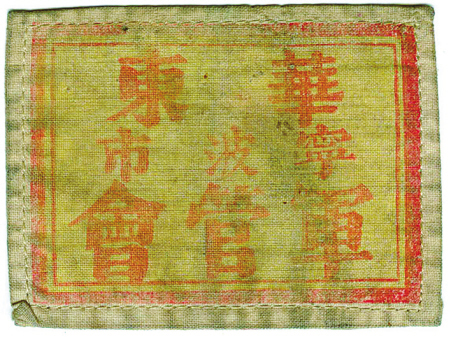 華東
寧波市
軍管會